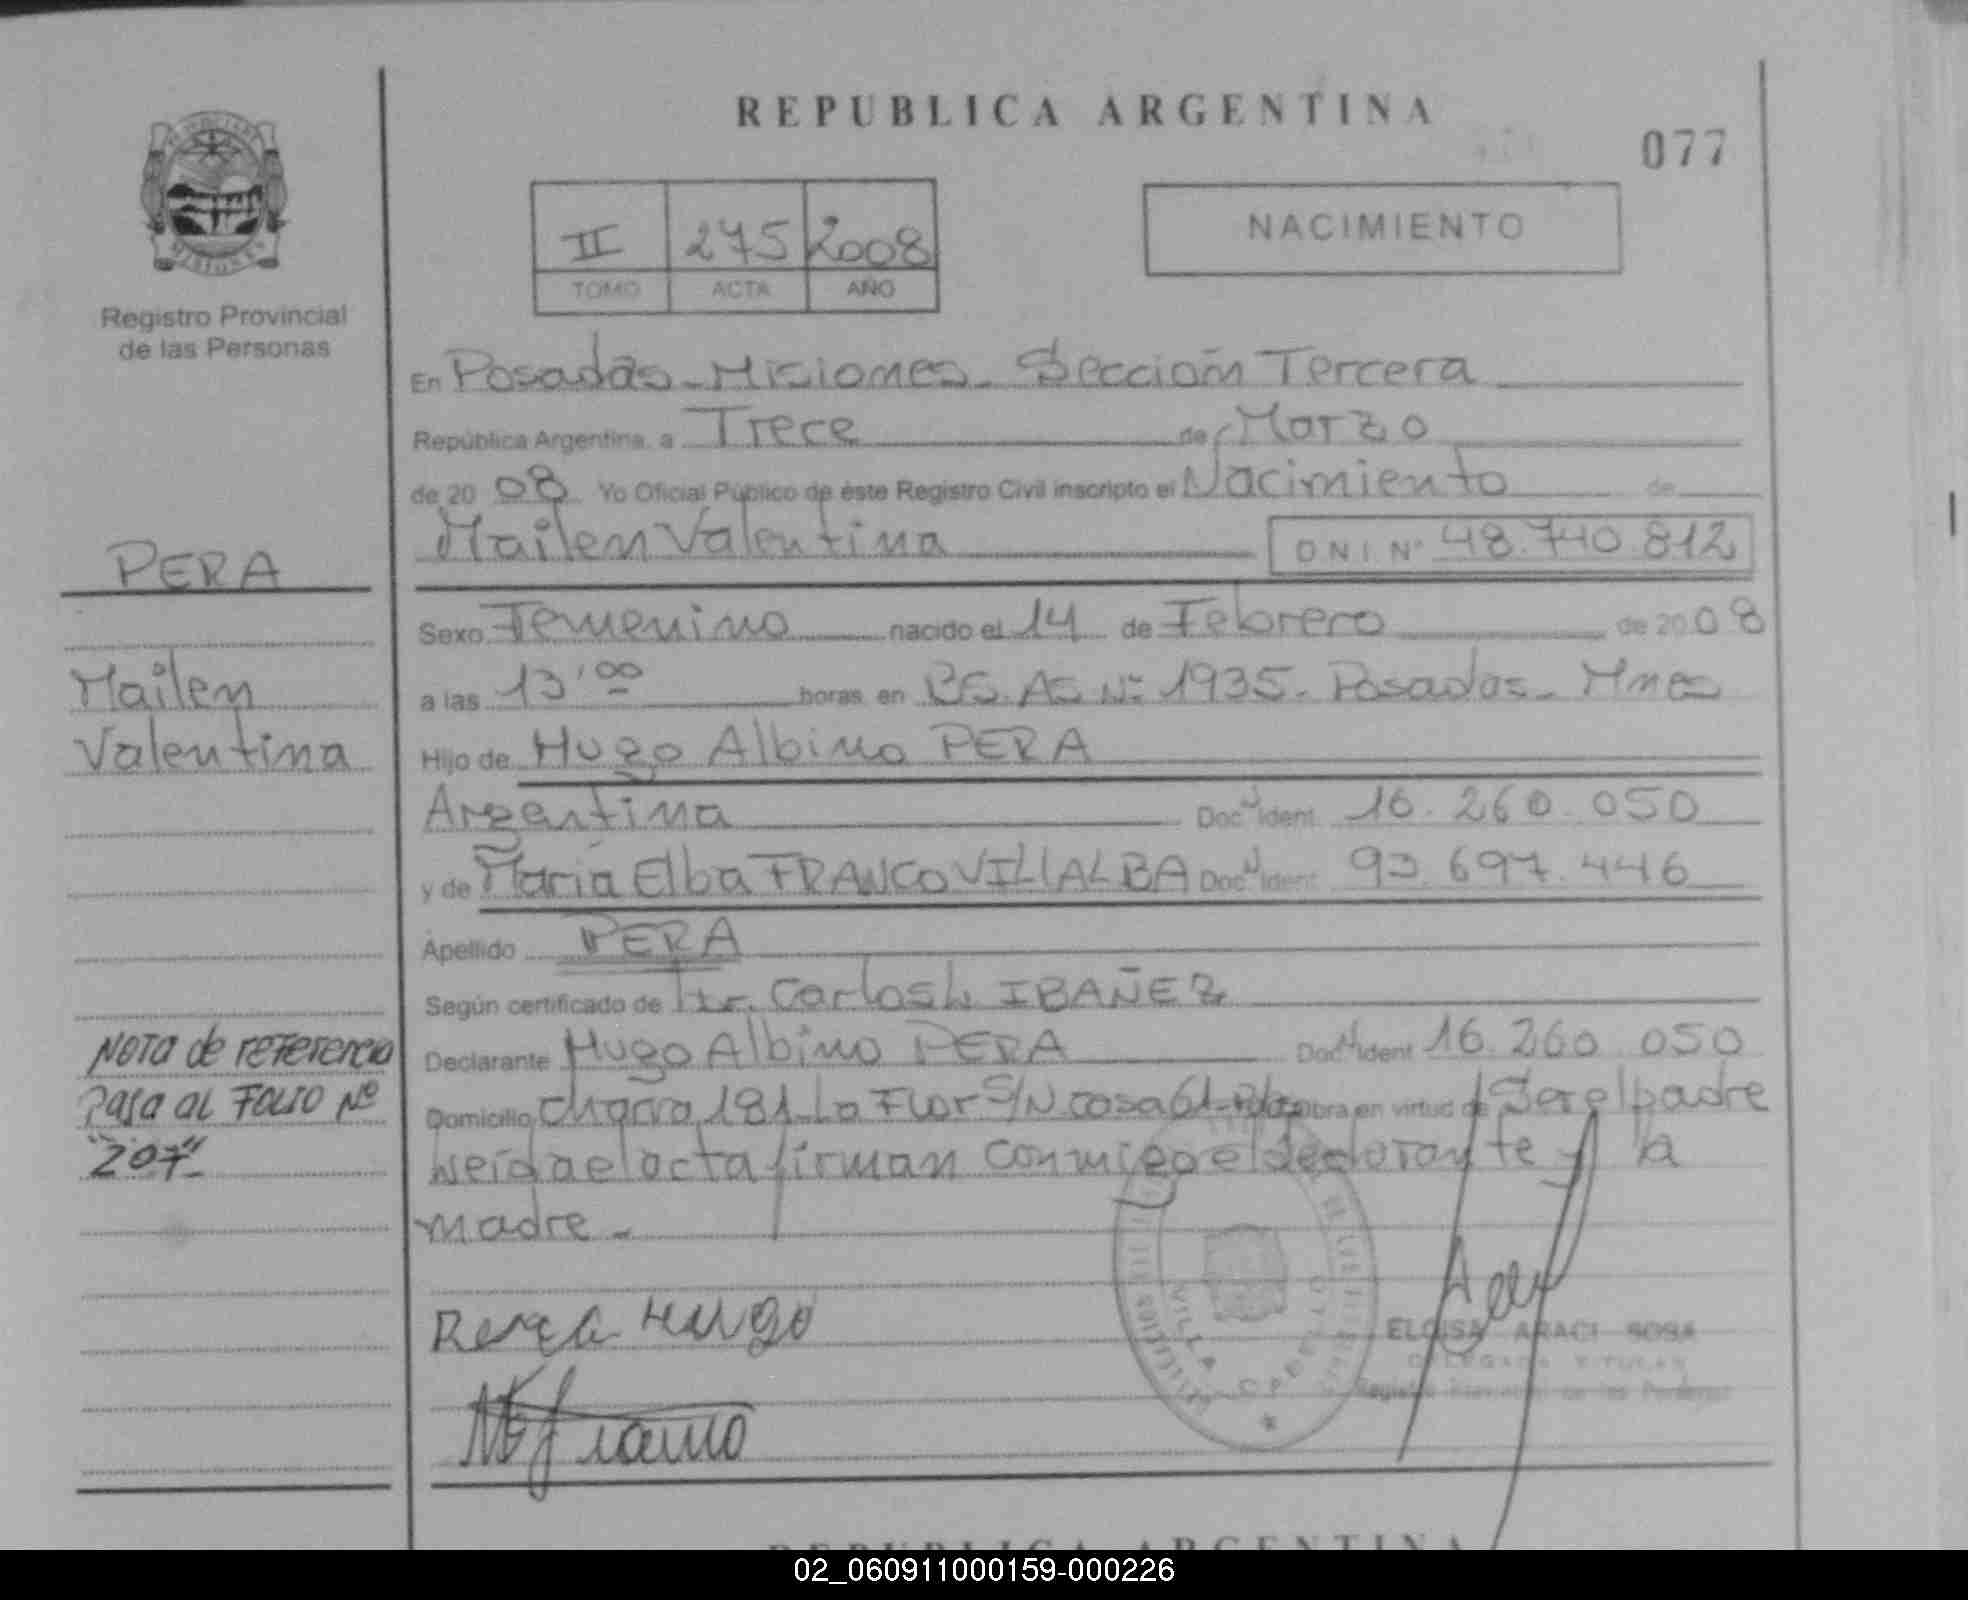 REPUBLICA ARGENTINA
077
II 275 2008
TOMO ACTA AÑO
NACIMIENTO
Registro Provincial
de las Personas
En Posadas - Misiones - Sección Tercera
República Argentina, a Trece de Marzo
de 20 08 Yo Oficial Público de éste Registro Civil inscripto el Nacimiento de
Mailen Valentina D N I Nº 48.740.812
PERA
Mailen
Valentina
Sexo Femenino nacido el 14 de Febrero de 20 08
a las 13'00 horas en BS. AS Nº 1935. Posadas - Mnes
Hijo de Hugo Albino PERA
Argentina Doc Ident 16.260.050
y de María Elba FRANCO VILLALBA Doc Ident 93.697.446
Apellido PERA
Según certificado de Dr. Carlos IBAÑEZ
Declarante Hugo Albino PERA Doc Ident 16.260.050
Domicilio Chacra 181 La Flor S/N casa 61 obra en virtud de Ser el padre
Leída el acta firman conmigo el declarante y la
madre -
Nota de referencia
Pasa al Folio Nº
"207"
Pera Hugo
VILLA CABELLO
ELOISA ARACI SOSA
DELEGADA TITULAR
Registro Provincial de las Personas
REPUBLICA ARGENTINA
02_060911000159-000226